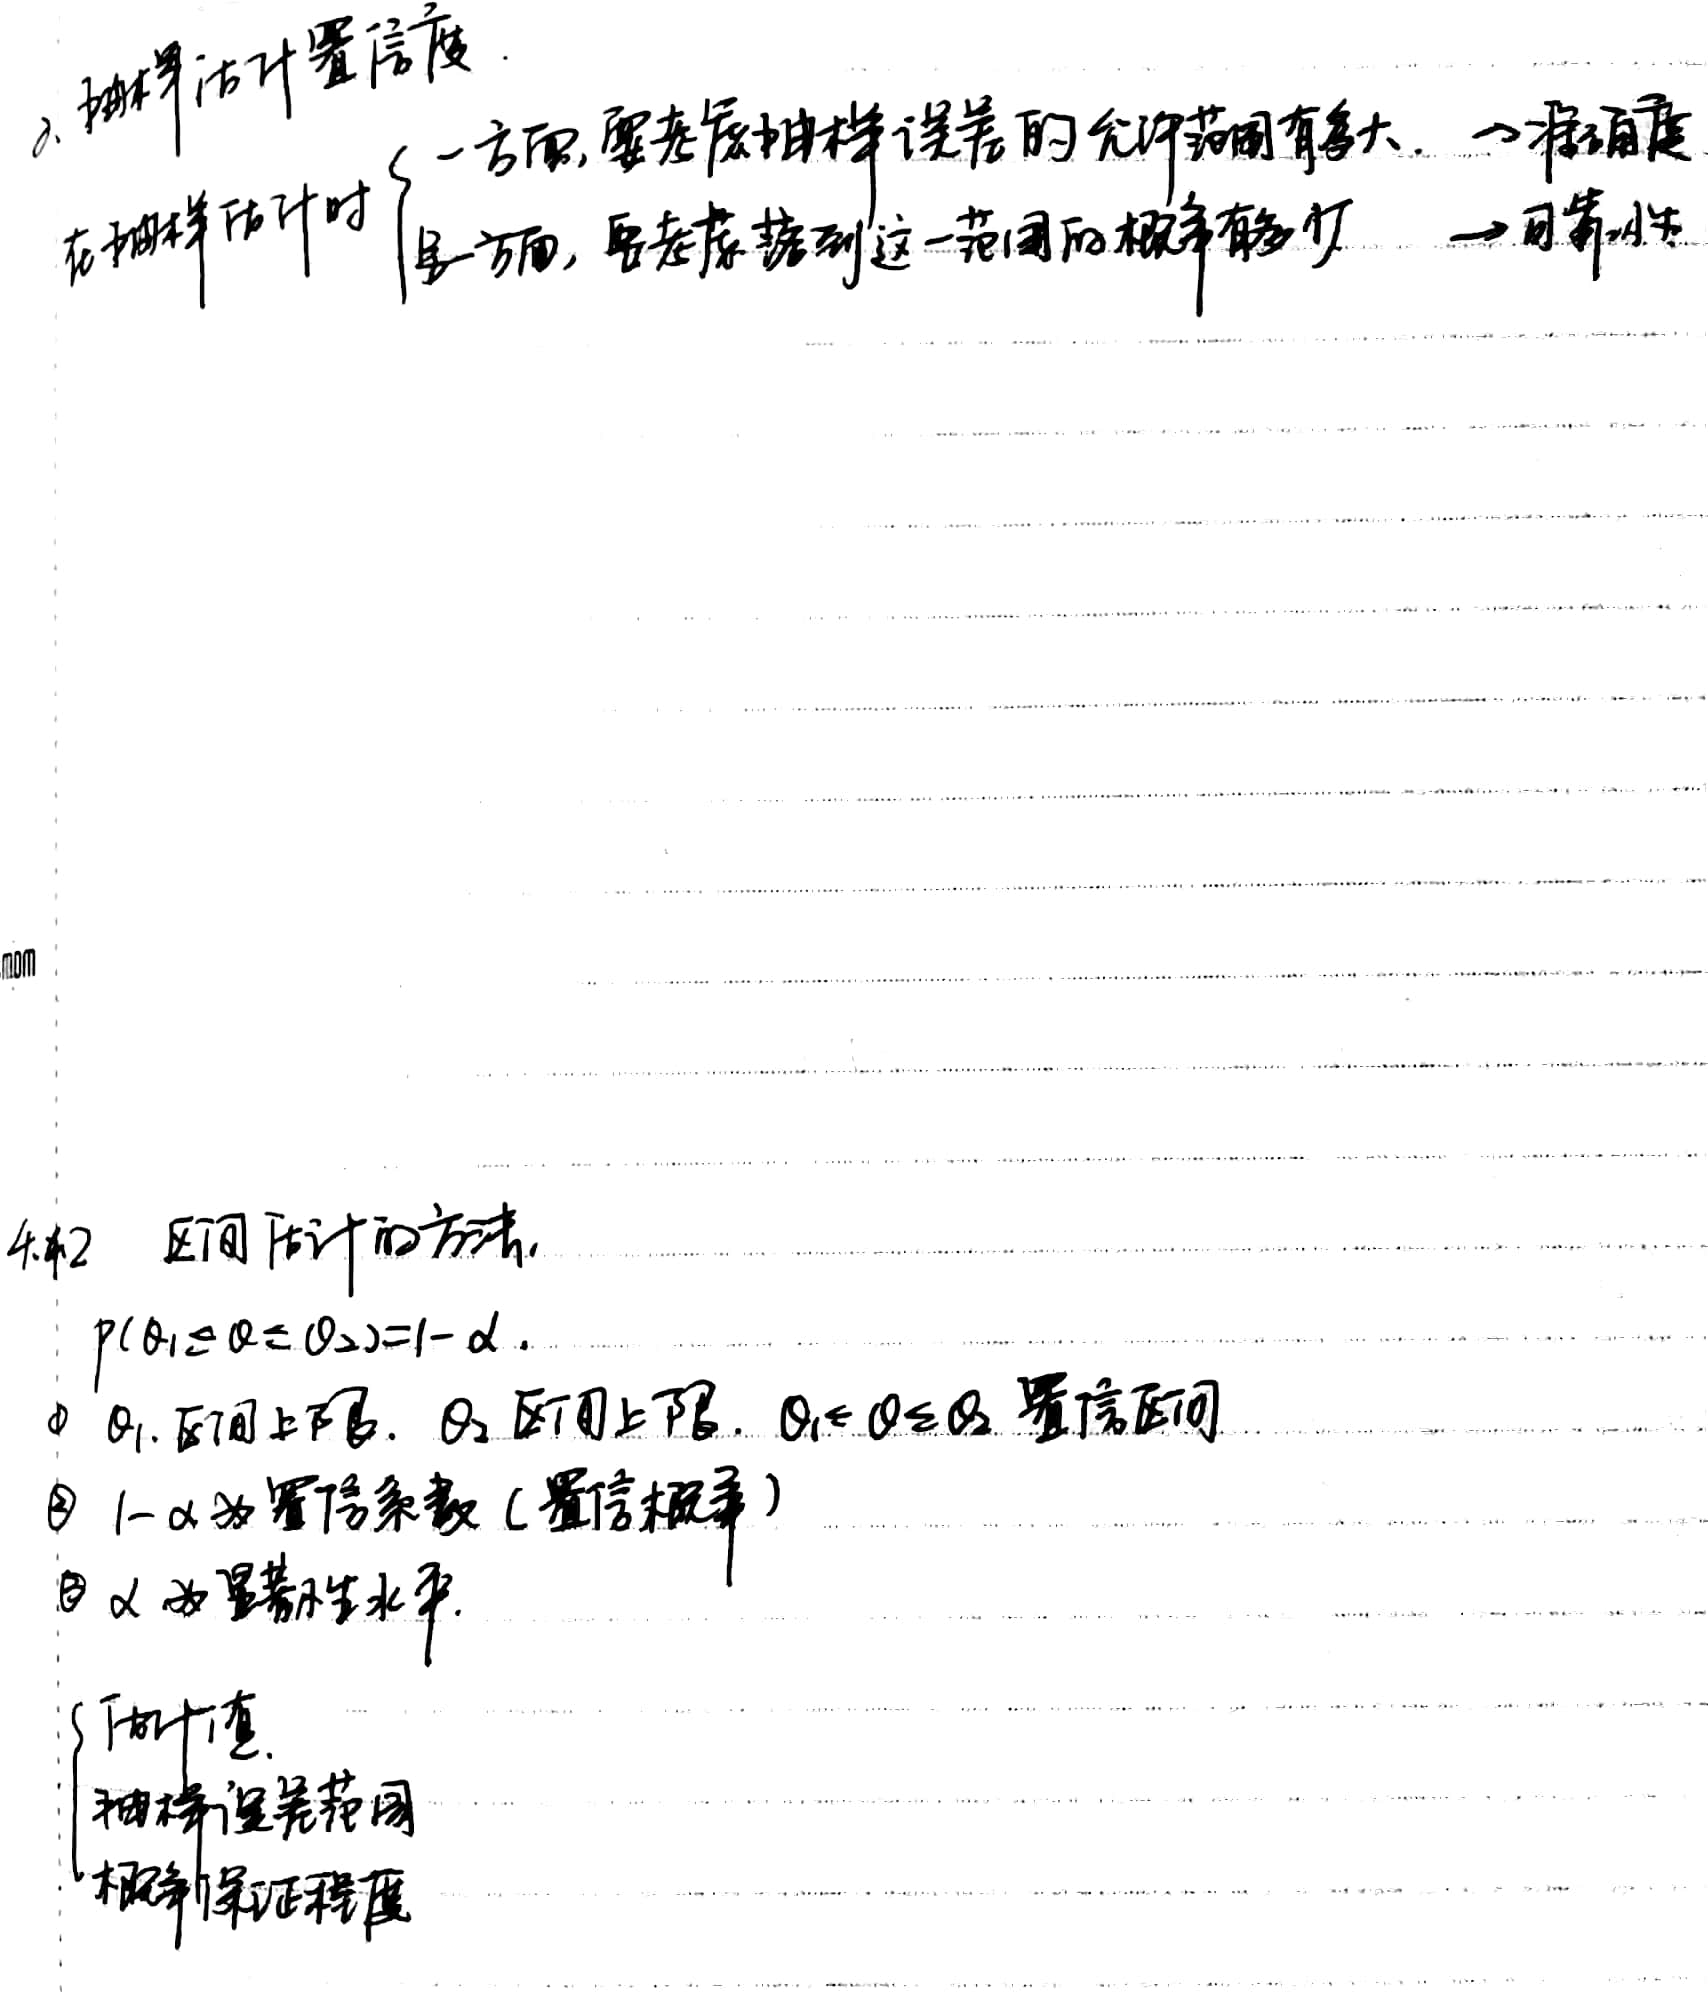 2、抽样估计置信度.
在抽样估计时 { 一方面,要考虑抽样误差的允许范围有多大. →准确度
另一方面,要考虑落到这一范围的概率有多少 →可靠性
mom
4.4.2 区间估计的方法.
P(θ₁≤θ≤θ₂)=1-α.
① θ₁.区间上下限. θ₂区间上下限. θ₁≤θ≤θ₂ 置信区间
② 1-α为置信系数(置信概率)
③ α为显著性水平.
{ 估计值.
抽样误差范围
概率保证程度